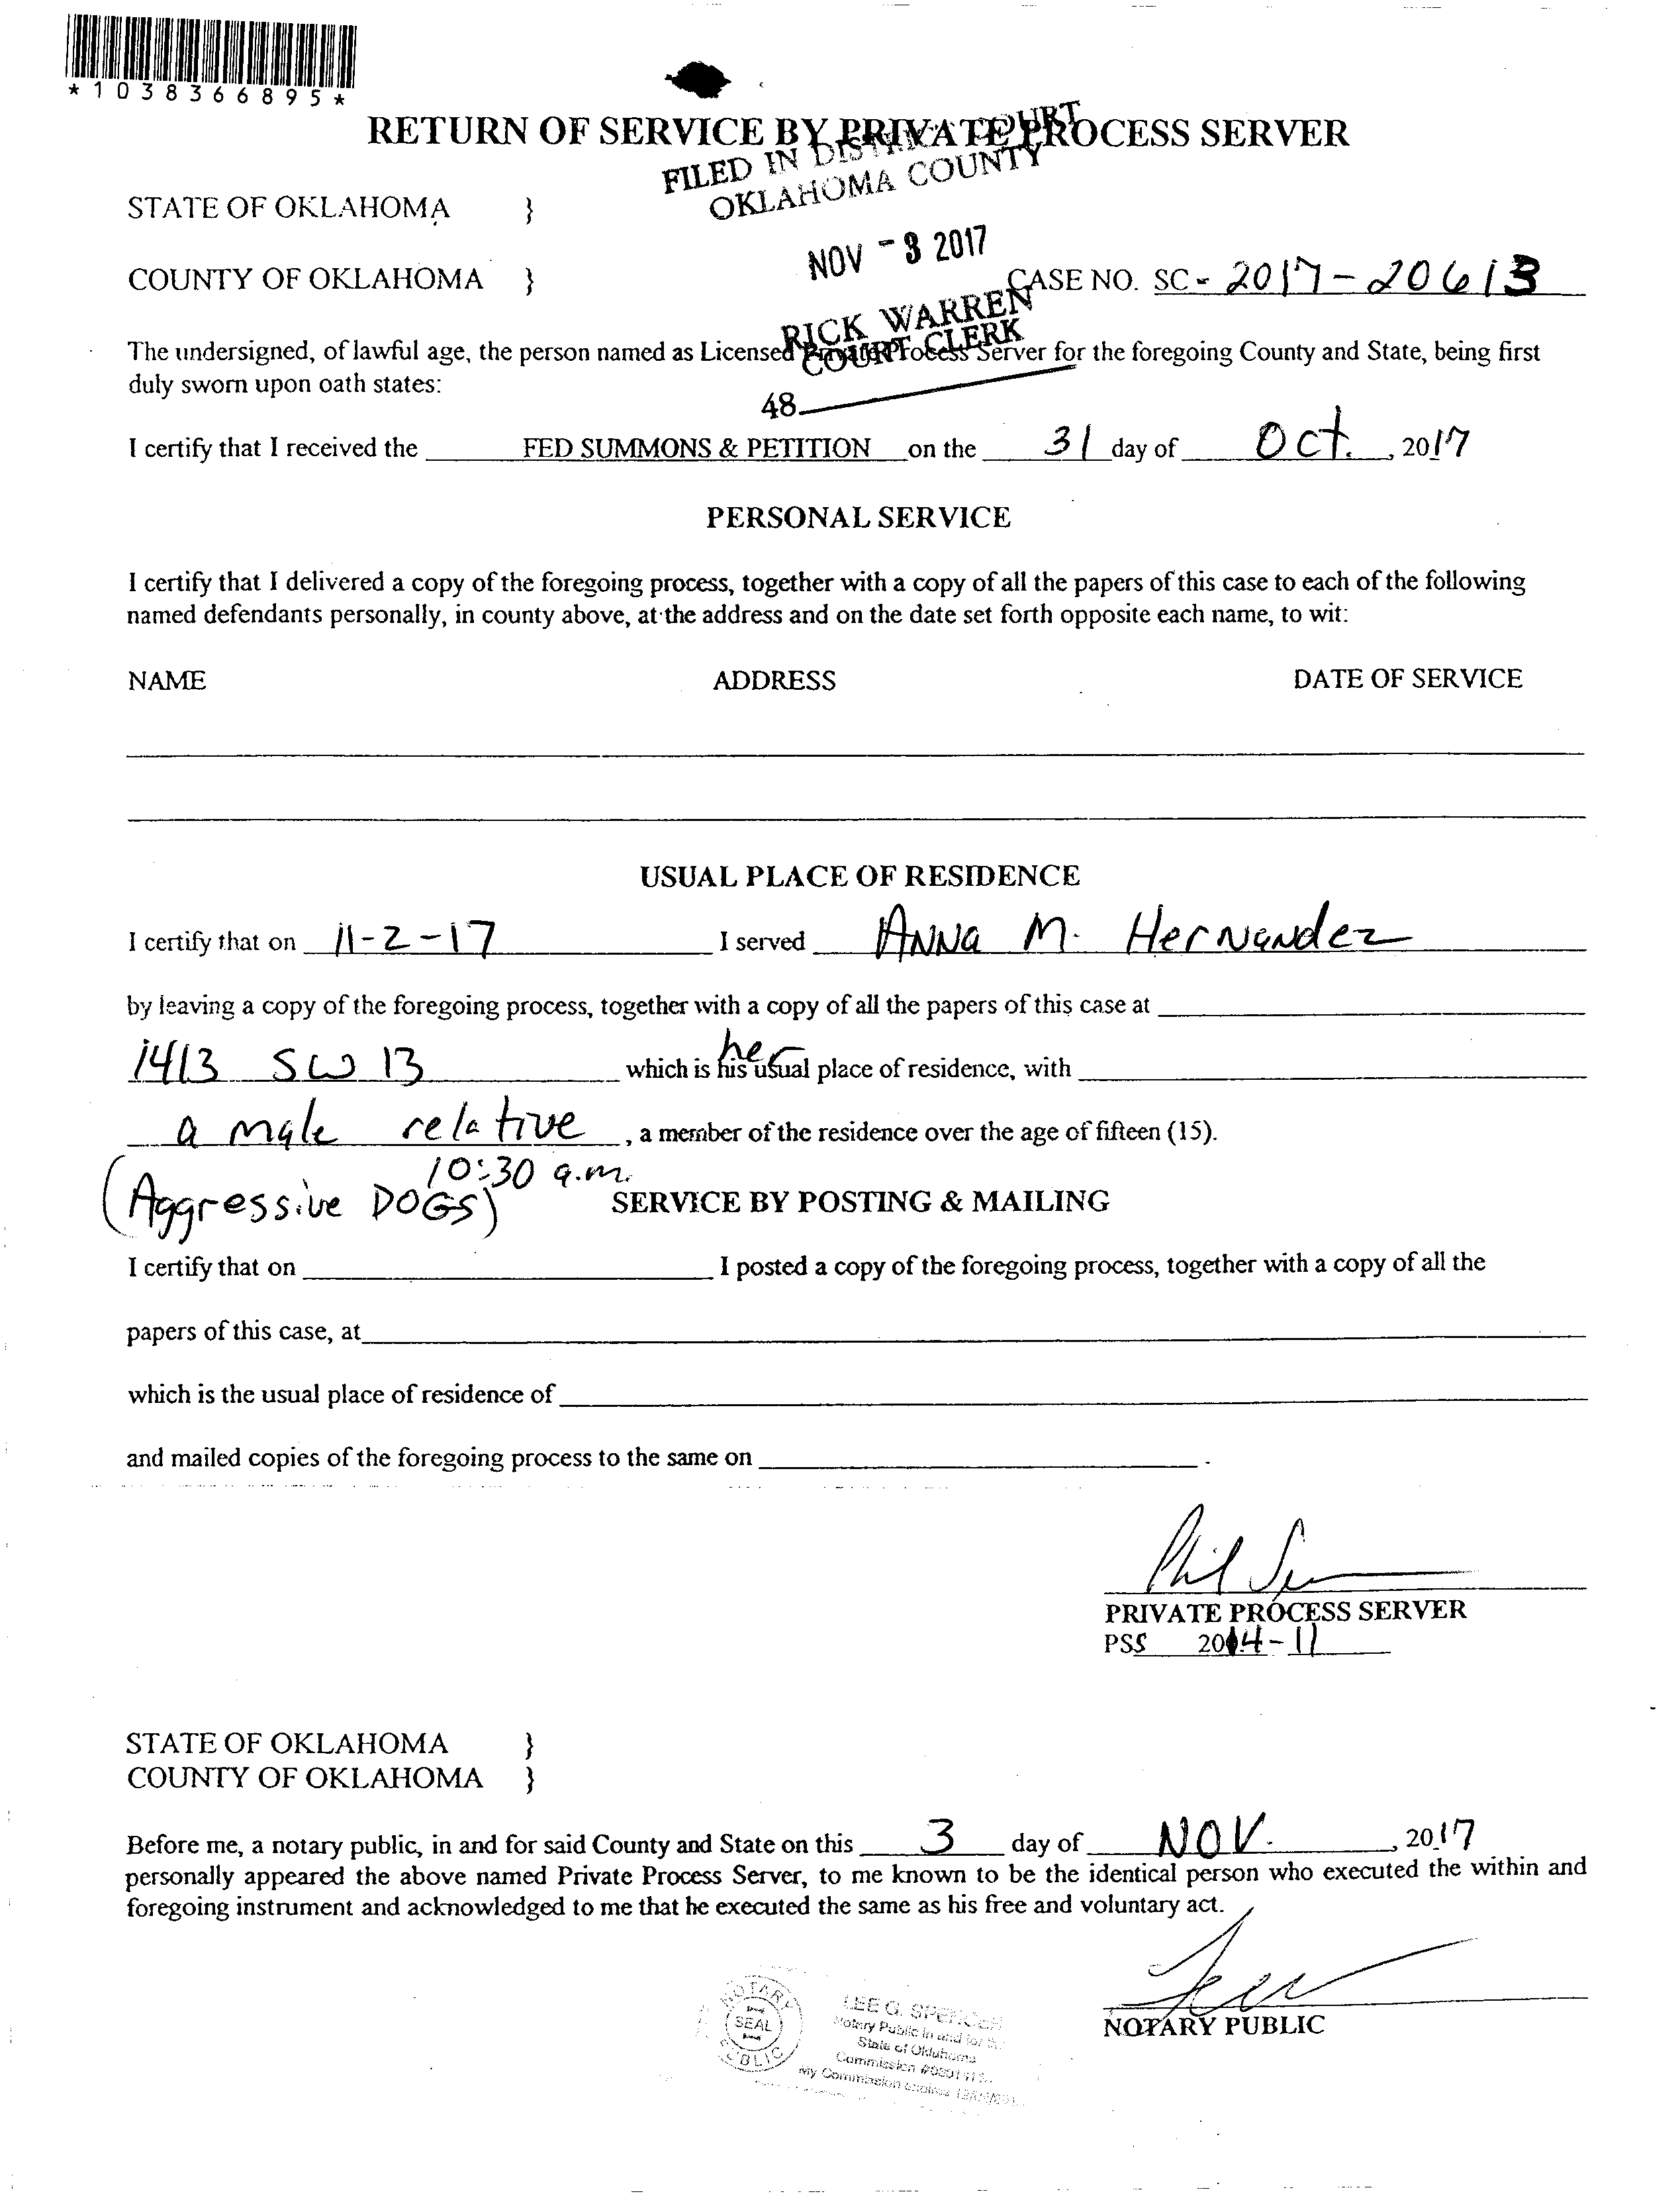 *1038366895*
RETURN OF SERVICE BY PRIVATE PROCESS SERVER
FILED IN DISTRICT COURT
OKLAHOMA COUNTY
STATE OF OKLAHOMA }
NOV - 3 2017
COUNTY OF OKLAHOMA } CASE NO. SC - 2017-20613
RICK WARREN
COURT CLERK
The undersigned, of lawful age, the person named as Licensed Private Process Server for the foregoing County and State, being first
duly sworn upon oath states:
48
I certify that I received the FED SUMMONS & PETITION on the 31 day of Oct. , 2017
PERSONAL SERVICE
I certify that I delivered a copy of the foregoing process, together with a copy of all the papers of this case to each of the following
named defendants personally, in county above, at the address and on the date set forth opposite each name, to wit:
NAME ADDRESS DATE OF SERVICE
USUAL PLACE OF RESIDENCE
I certify that on 11-2-17 I served ANNA M. HerNaNdez
by leaving a copy of the foregoing process, together with a copy of all the papers of this case at
her
1413 SW 13 which is his usual place of residence, with
a male relative , a member of the residence over the age of fifteen (15).
10:30 a.m.
(Aggressive DOGS)
SERVICE BY POSTING & MAILING
I certify that on I posted a copy of the foregoing process, together with a copy of all the
papers of this case, at
which is the usual place of residence of
and mailed copies of the foregoing process to the same on .
Phil
PRIVATE PROCESS SERVER
PSS 2014-11
STATE OF OKLAHOMA }
COUNTY OF OKLAHOMA }
Before me, a notary public, in and for said County and State on this 3 day of NOV. , 2017
personally appeared the above named Private Process Server, to me known to be the identical person who executed the within and
foregoing instrument and acknowledged to me that he executed the same as his free and voluntary act.
NOTARY PUBLIC
NOTARY
SEAL
PUBLIC
LEE G. SPENCER
Notary Public in and for the
State of Oklahoma
Commission
My Commission expires